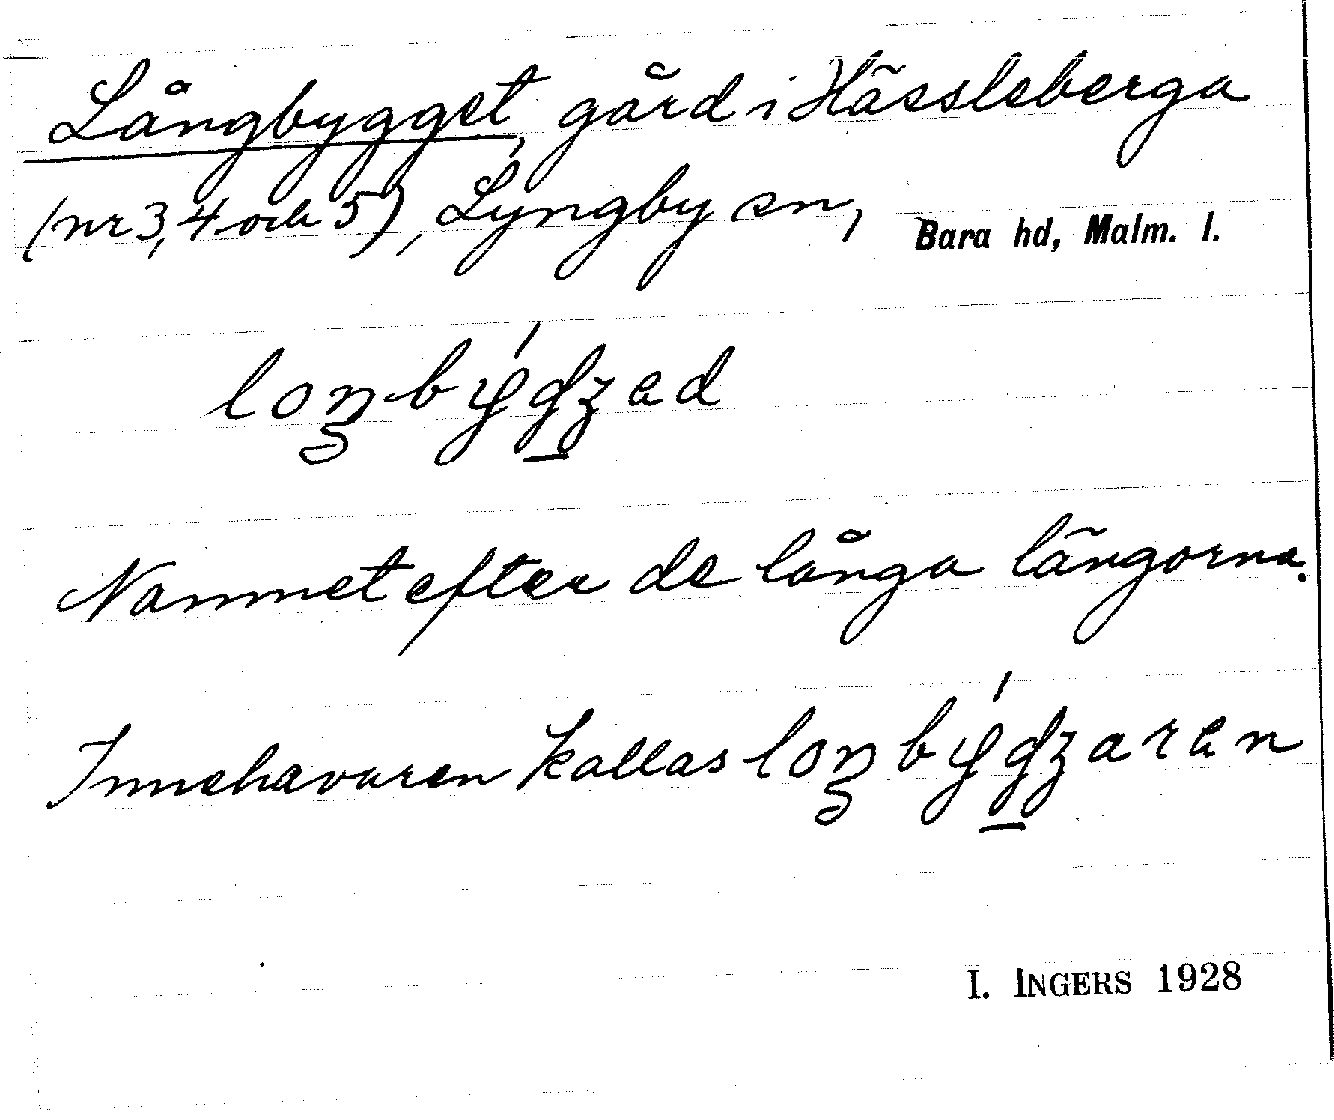 Långbygget, gård i Hässleberga
(nr 3, 4 och 5), Lyngby sn, Bara hd, Malm. l.
loŋbýdʒad
Namnet efter de långa längorna.
Innehavaren kallas loŋbýdʒaran
I. INGERS 1928